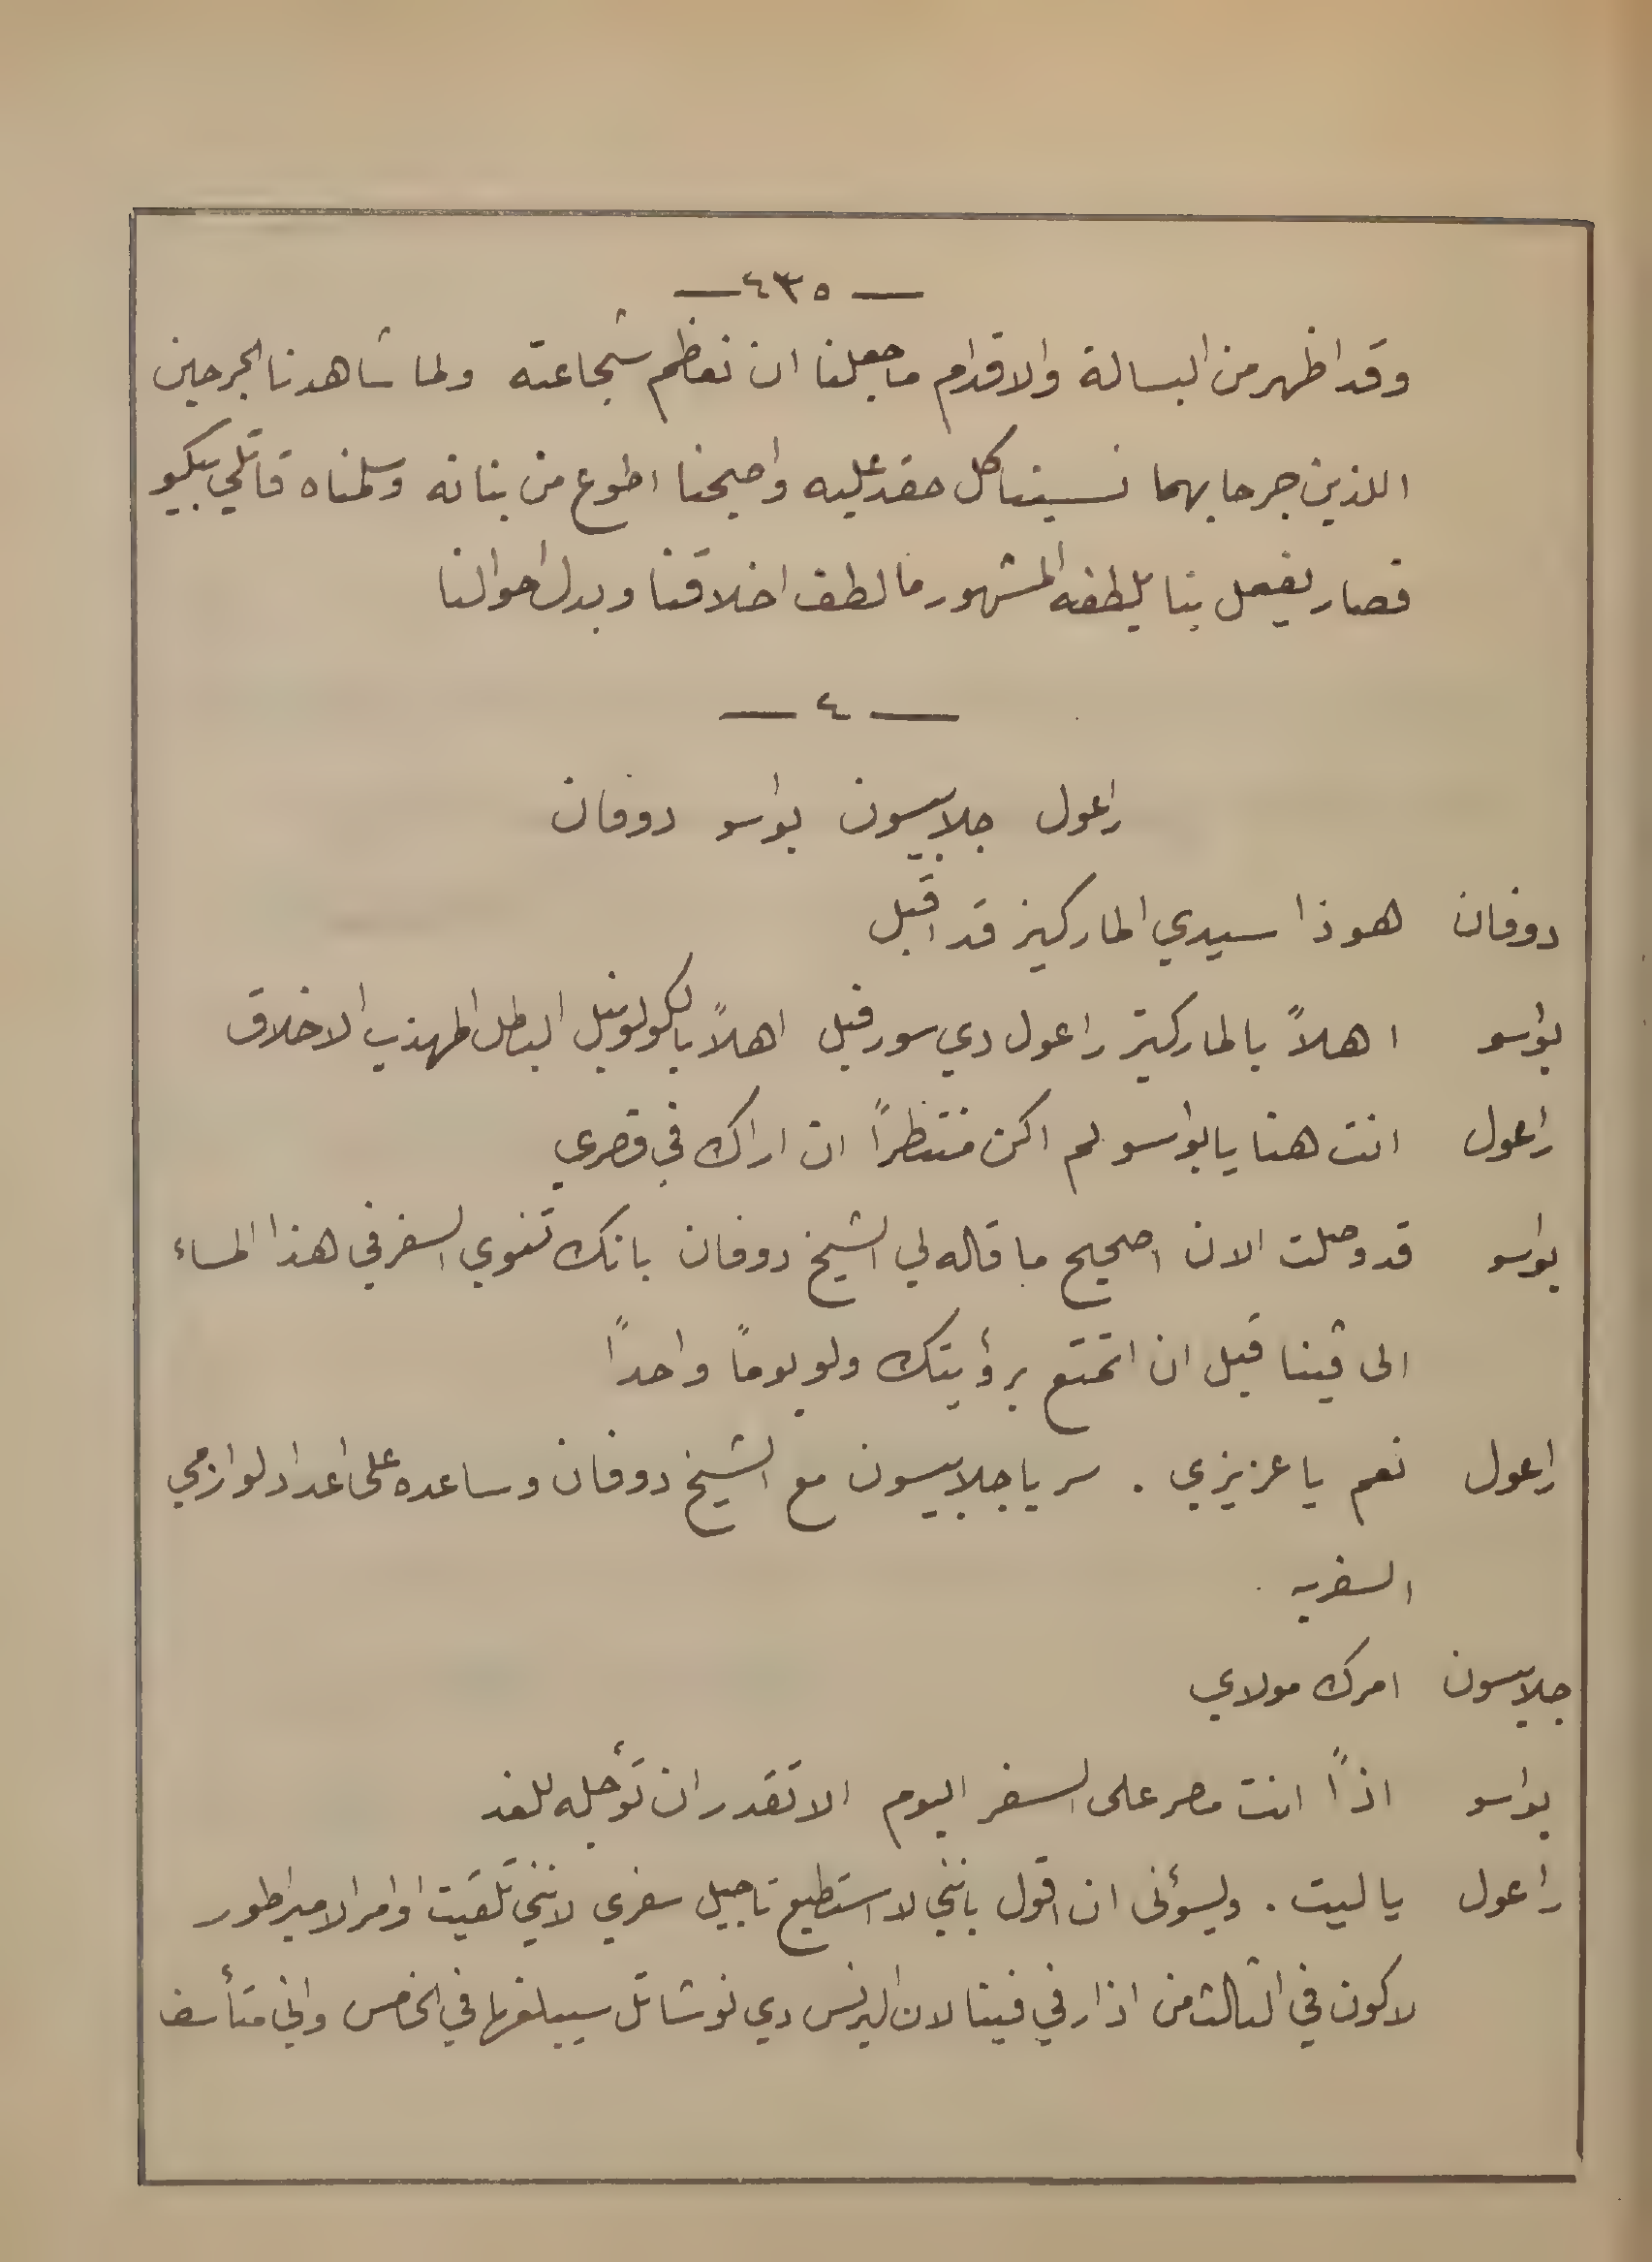 — ٤٣٥ —
وقد اظهر من البسالة والاقدام ما جعلنا ان نعظم شجاعته ولما شاهدنا الجرحين
اللذين جرحا بهما نسينا كل حقد عليه واصبحنا اطوع من بنانه وسلمناه قاتلي بيكو
فصار يفعل بنا بلطفه المشهور ما لطف اخلاقنا وبدل احوالنا
— ٤ —
راعول جلابيسون بواسو دوفان
دوفان هوذا سيدي الماركيز قد اقبل
بواسو اهلاً بالماركيز راعول دي سورفيل اهلاً بالكولونيل البطل المهذب الاخلاق
راعول انت هنا يا بواسو لم اكن منتظراً ان اراك في قصري
بواسو قد وصلت الان اصحيح ما قاله لي الشيخ دوفان بانك تنوي السفر في هذا المساء
الى ڤينا قبل ان اتمتع برؤيتك ولو يوماً واحداً
راعول نعم يا عزيزي . سر يا جلابيسون مع الشيخ دوفان وساعده على اعداد لوازمي
السفريه
جلابيسون امرك مولاي
بواسو اذاً انت مصر على السفر اليوم الا تقدر ان تؤجله للغد
راعول يا ليت . ويسؤني ان اقول بانني لا استطيع تاجيل سفري لانني تلقيت اوامر الامبراطور
لاكون في الثالث من اذار في فينا لان البرنس دي نوشاتل سيبلغها في الخامس واني متأسف